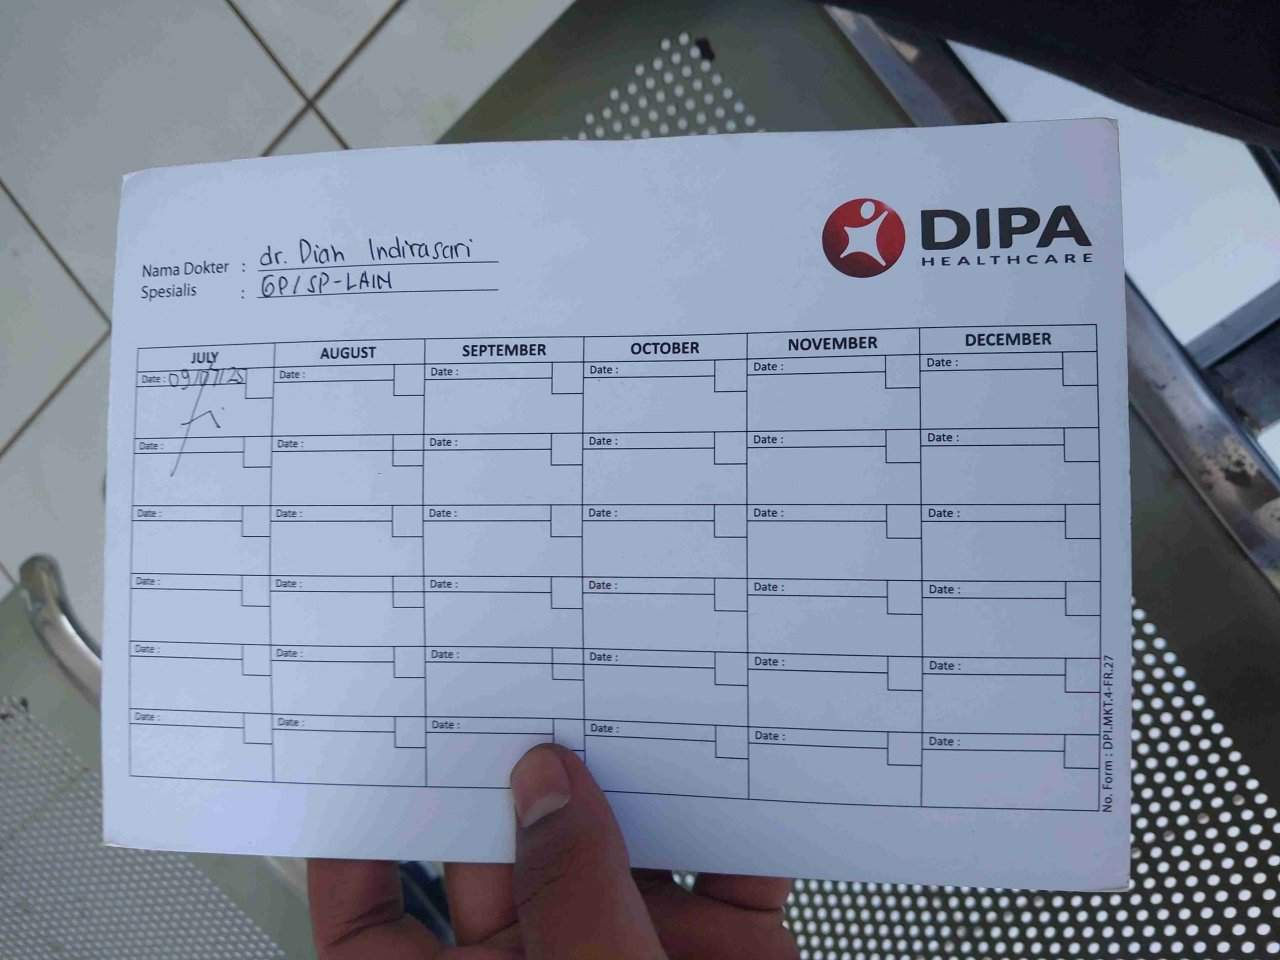 DIPA
HEALTHCARE
Nama Dokter : dr. Diah Indirasari
Spesialis : GP/SP-LAIN
JULY AUGUST SEPTEMBER OCTOBER NOVEMBER DECEMBER
Date : 09/07/25 Date : Date : Date : Date : Date :
Date : Date : Date : Date : Date : Date :
Date : Date : Date : Date : Date : Date :
Date : Date : Date : Date : Date : Date :
Date : Date : Date : Date : Date : Date :
Date : Date : Date : Date : Date : Date :
No. Form : DPI.MKT.4-FR.27